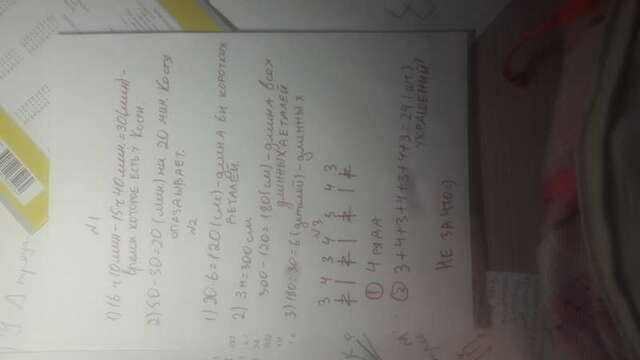 №1
1) 16 ч 10 мин - 15 ч 40 мин. = 30 (мин) -
время которое есть у Кости.
2) 50 - 30 = 20 (мин) на 20 мин. Костя
опаздывает.
№2
1) 20·6 = 120 (см) - длина 6и коротких
деталей.
2) 3м = 300 см
300 - 120 = 180 (см) - длина всех
длинных деталей
3) 180:30 = 6 (деталей) - длинных
№3
3 4 3 4 3 4 3
① 4 ряда
② 3+4+3+4+3+4+3=24 (шт.)
украшений!
НЕ ЗА ЧТО:)